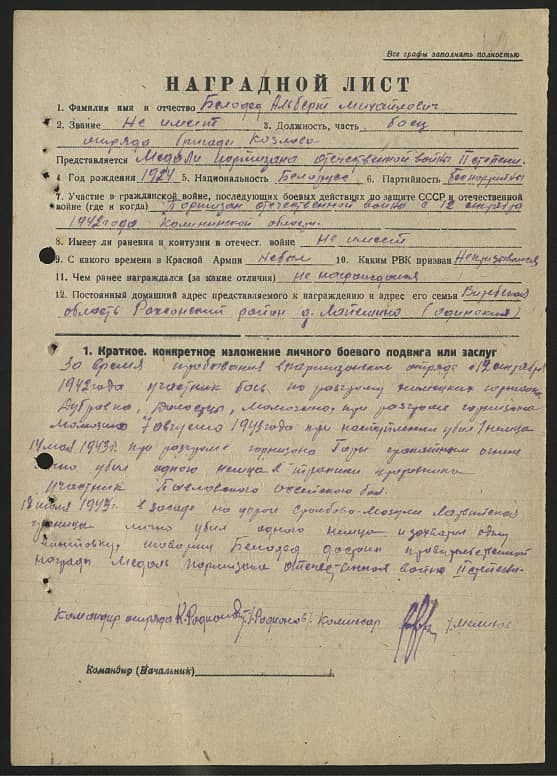 Все графы заполнять полностью
НАГРАДНОЙ ЛИСТ
1. Фамилия имя и отчество Белодед Альберт Михайлович
2. Звание Не имеет 3. Должность, часть боец
отряда бригады Козлова
Представляется Медали партизана отечественной войны II степени
4. Год рождения 1924 5. Национальность Белорус 6. Партийность Беспартийный
7. Участие в гражданской войне, последующих боевых действиях по защите СССР и отечественной
войне (где и когда) Партизан отечественной войны с 12 октября
1942 года Калининской области
8. Имеет ли ранения и контузии в отечест. войне не имеет
9. С какого времени в Красной Армии не был 10. Каким РВК призван Непризывался
11. Чем ранее награждался (за какие отличия) не награждался
12. Постоянный домашний адрес представляемого к награждению и адрес его семьи Витебская
область район д. (одинокий)
1. Краткое, конкретное изложение личного боевого подвига или заслуг
За время пребывания в партизанском отряде с 12 октября
1942 года участник боев по разгрому немецких гарнизонов
Дубровка, при разгроме гарнизона
7 августа 1943 года при наступлении убил 1 немца
14 мая 1943 г. при разгроме гарнизона Горы гранатным огнем
лично убил одного немца в траншеи противника
участник боя.
1943 г. в засаде на дороге Латвийская
граница лично убил одного немца и захватил одну
винтовку, товарищ Белодед достоин правительственной
награды Медаль партизана отечественной войны II степени.
Командир отряда К. Родионов (Родионов) Комиссар
Командир (Начальник)